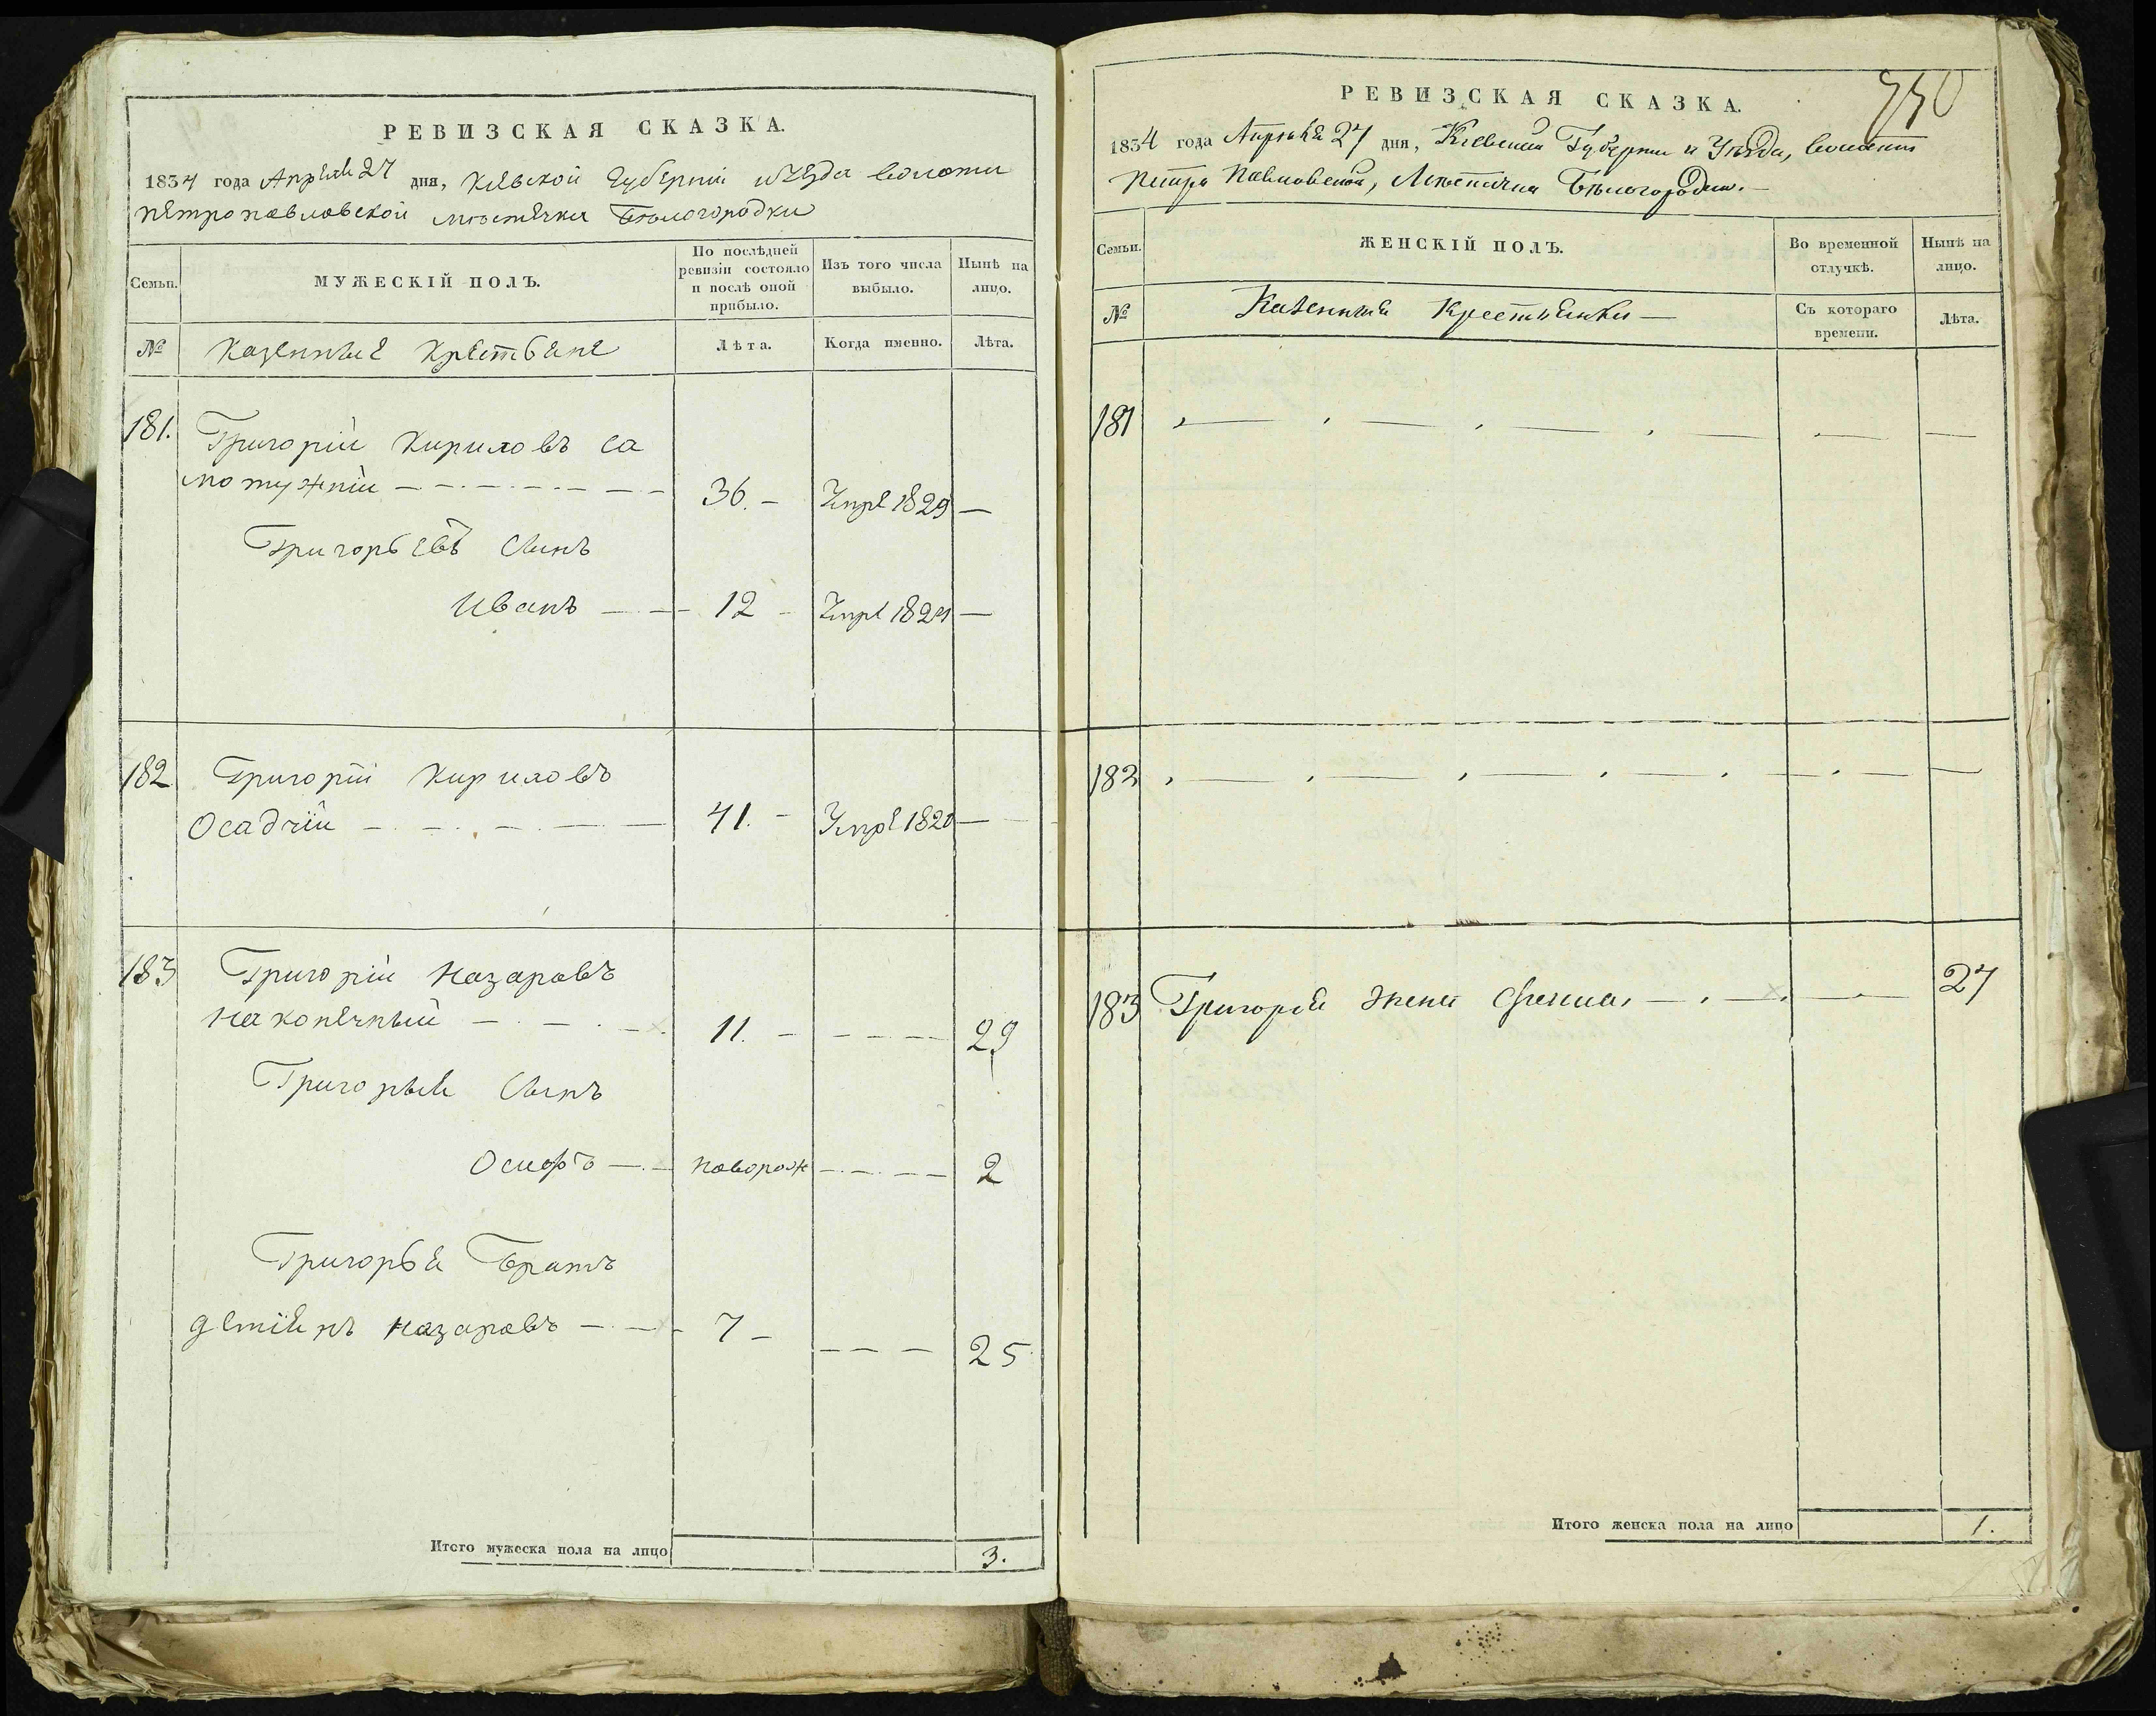 РЕВИЗСКАЯ СКАЗКА.
1834 года Апреля 27 дня, Киевской Губернии и уезда волости
петропавловской местечка Белогородки
Семьи. МУЖЕСКІЙ ПОЛЪ. По послѣдней ревизіи состояло и послѣ оной прибыло. Изъ того числа выбыло. Нынѣ на лицо.
№ Казенные крестьяне Лѣта. Когда именно. Лѣта.
181. Григорій Кириловъ са
мотужній 36. Умре 1829
Григорьевъ Сынъ
Иванъ 12 Умре 1824
182 Григорій Кириловъ
Осадчій 41. Умре 1820
183 Григорій Назаровъ
Наконечный 11. 29
Григорья Сынъ
Осифъ новорож 2
Григорья Братъ
Назаровъ 7 25
Итого мужеска пола на лицо 3.
РЕВИЗСКАЯ СКАЗКА.
1834 года Апреля 27 дня, Киевской Губернии и Уѣзда, волости
Петро Павловской, Местечка Бѣлогородки.
Семьи. ЖЕНСКІЙ ПОЛЪ. Во временной отлучкѣ. Нынѣ на лицо.
№ Казенные Крестьянки Съ котораго времени. Лѣта.
181
182
183 Григорія жена 27
Итого женска пола на лицо 1.